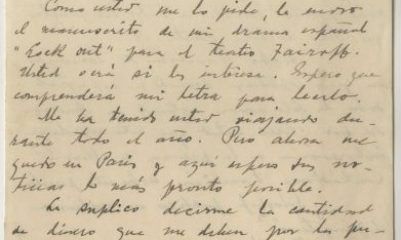 Como usted me lo pide, le envío
el manuscrito de mi drama español
"Lock out" para el teatro Fairoff.
Usted verá si les interesa. Espero que
comprenderá mi letra para leerlo.
Me ha tenido usted viajando du-
rante todo el año. Pero ahora me
quedo en París y aquí espero sus no-
ticias lo más pronto posible.
Le suplico decirme la cantidad
de dinero que me deben por la pu-